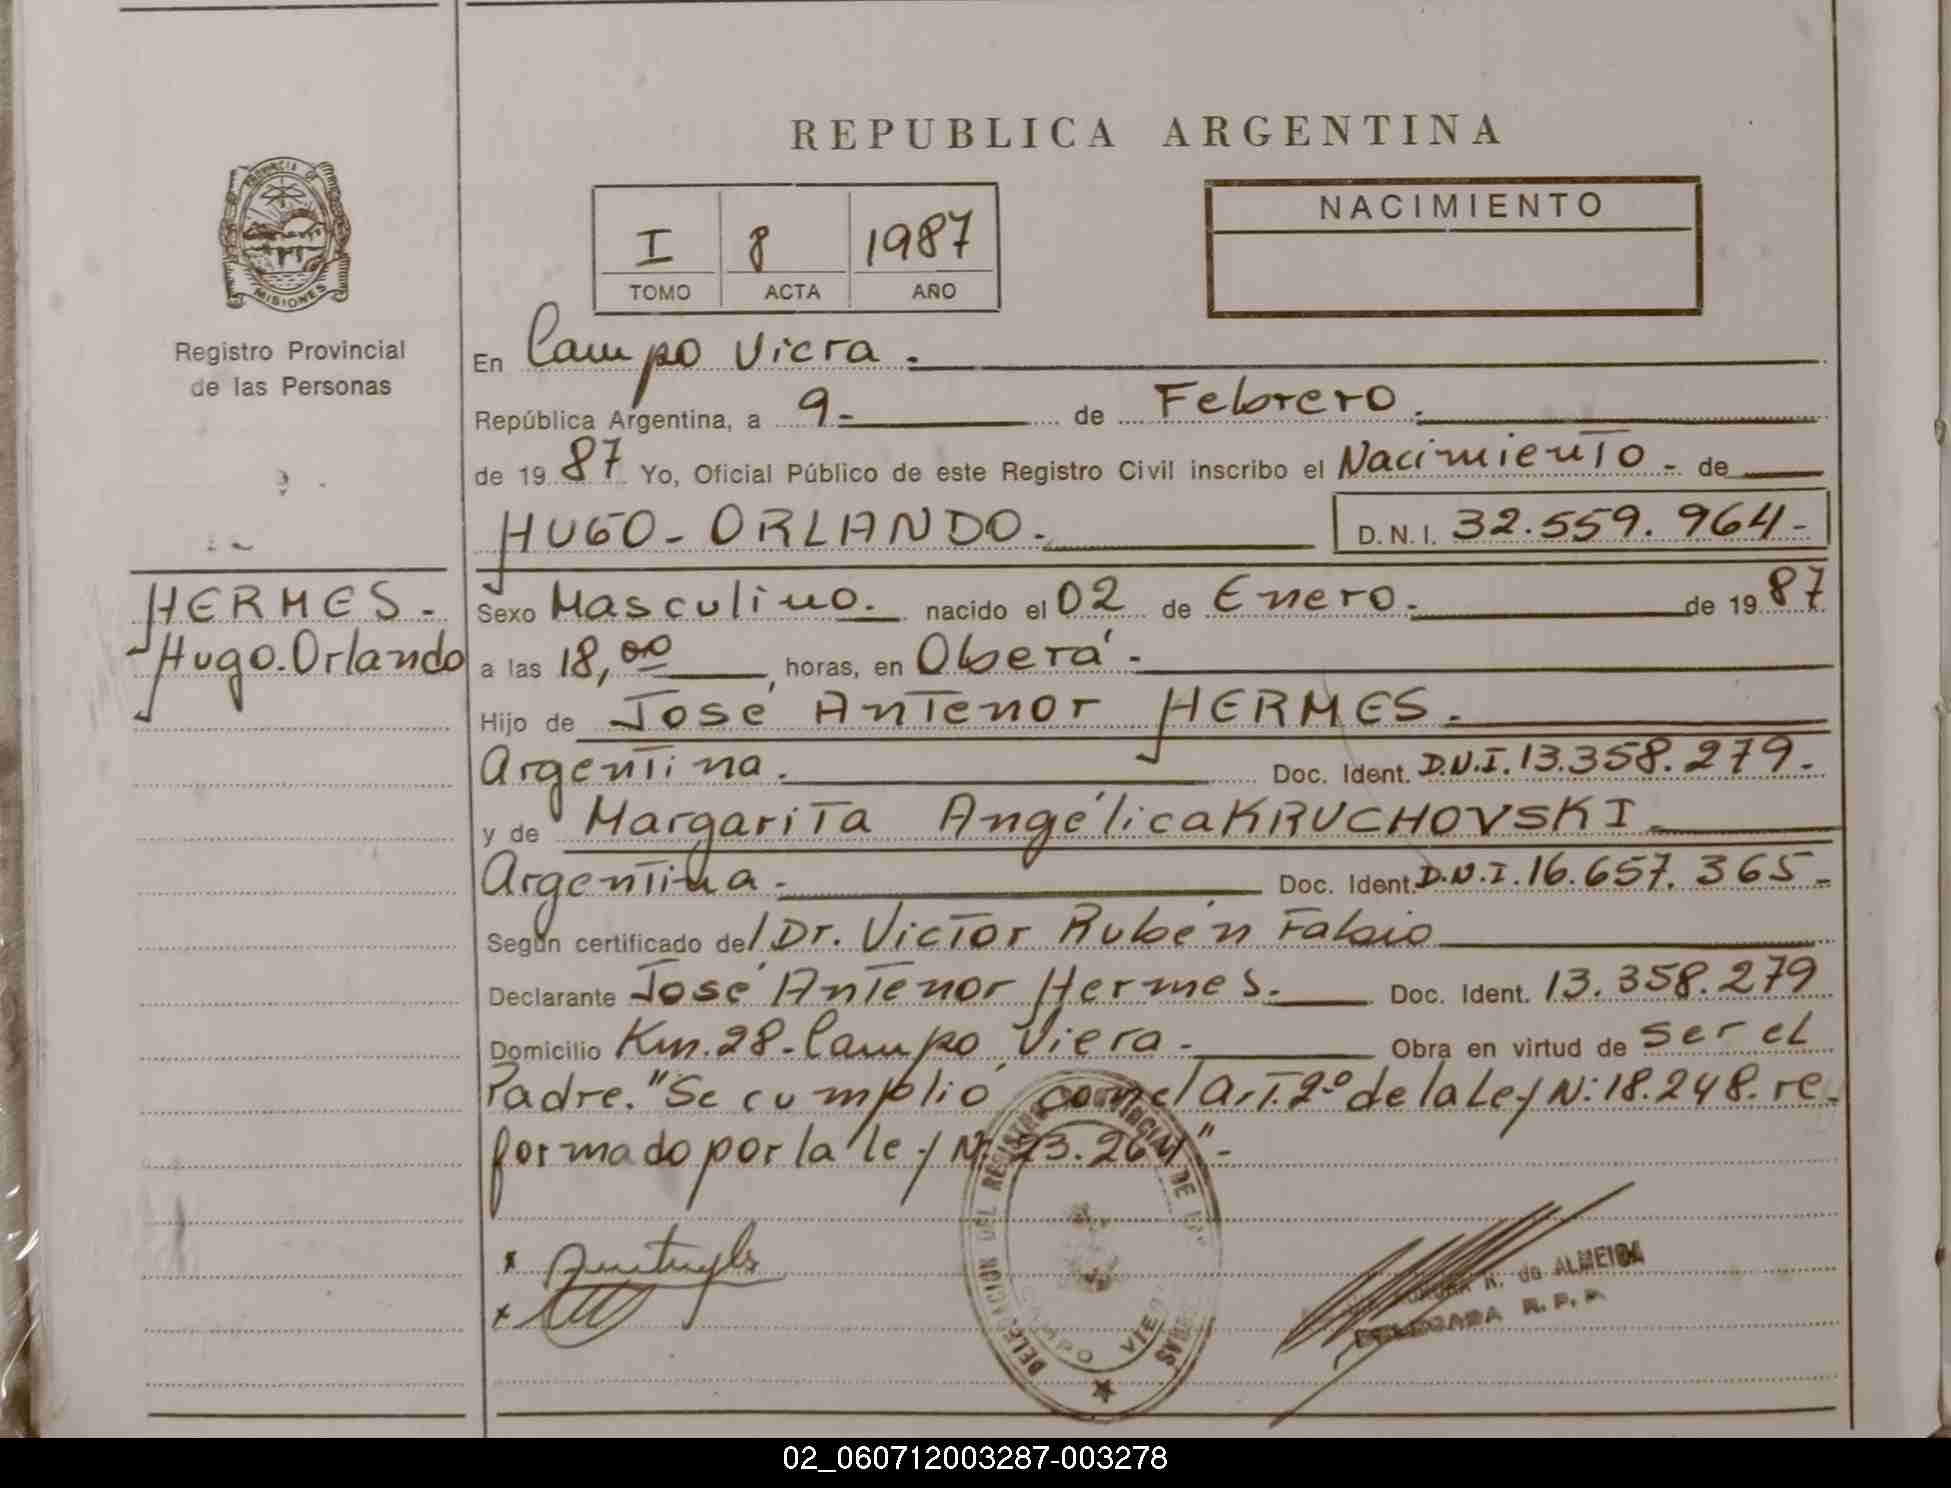 REPUBLICA ARGENTINA
PROVINCIA DE
MISIONES
Registro Provincial
de las Personas
I 8 1987
TOMO ACTA AÑO
NACIMIENTO
En Campo Viera.
República Argentina, a 9- de Febrero.
de 1987 Yo, Oficial Público de este Registro Civil inscribo el Nacimiento - de
HUGO-ORLANDO. D.N.I. 32.559.964-
HERMES-
Hugo.Orlando
Sexo Masculino. nacido el 02 de Enero. de 1987
a las 18,00 horas, en Oberá-
Hijo de José Antenor HERMES.
Argentina. Doc. Ident. D.N.I. 13.358.279-
y de Margarita Angélica KRUCHOVSKI
Argentina- Doc. Ident. D.N.I. 16.657.365-
Según certificado del Dr. Victor Rubén Fabio
Declarante José Antenor Hermes. Doc. Ident. 13.358.279
Domicilio Km.28-Campo Viera- Obra en virtud de ser el
Padre. "Se cumplió con el Art. 2º de la Ley N: 18.248. re-
formado por la ley N: 23.264"-
DELEGACION DEL REGISTRO PROVINCIAL DE
CAMPO VIERA
N. de ALMEIDA
DELEGADA R. P. P.
02_060712003287-003278